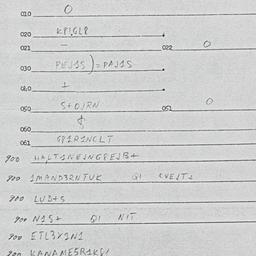 010 0
020 KPIGL8
021 – 022 0
030 PEJ15)=PAJ15
040 1
050 S+0JRN 051 0
060
061 GP1R1NCLT
900 HALT1NEJNGPEJB+
900 1MAND3RNTUK QI CVEJTJ
900 LUD+S
900 N1S+ QI NIT
900 ETL3Y1N1
900 KANAME5R1KGI